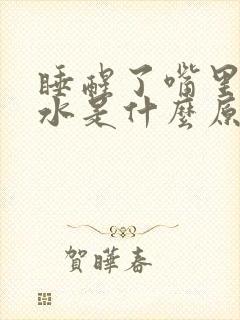 睡醒了嘴里
水是什麼原
賀曄春